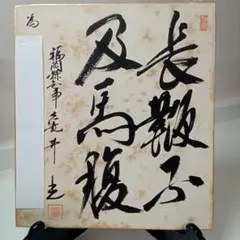 長鞭不
及馬腹
福岡県知事 亀井 光
為